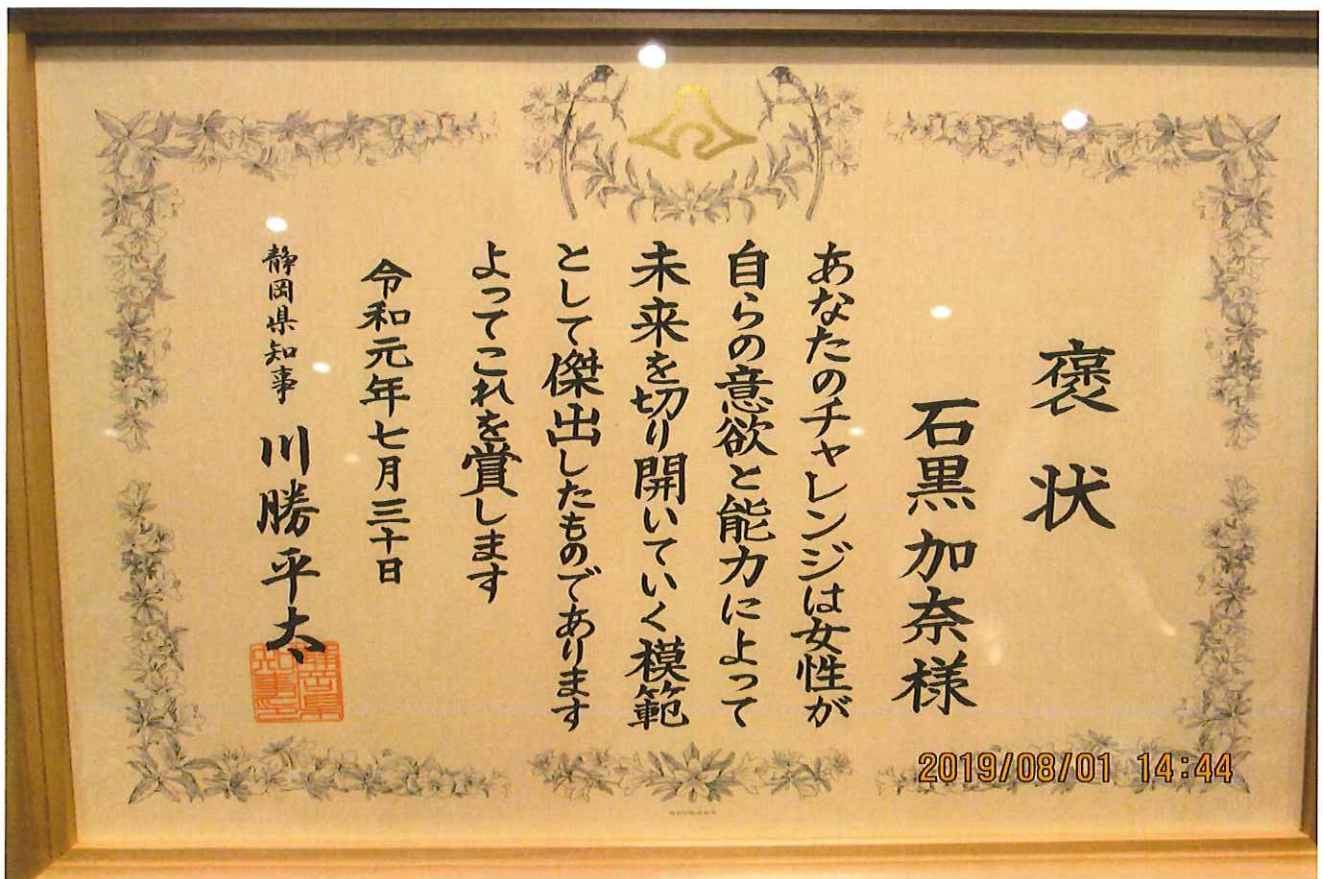 褒状
石黒加奈様
あなたのチャレンジは女性が
自らの意欲と能力によって
未来を切り開いていく模範
として傑出したものであります
よってこれを賞します
令和元年七月三十日
静岡県知事 川勝平太
2019/08/01 14:44